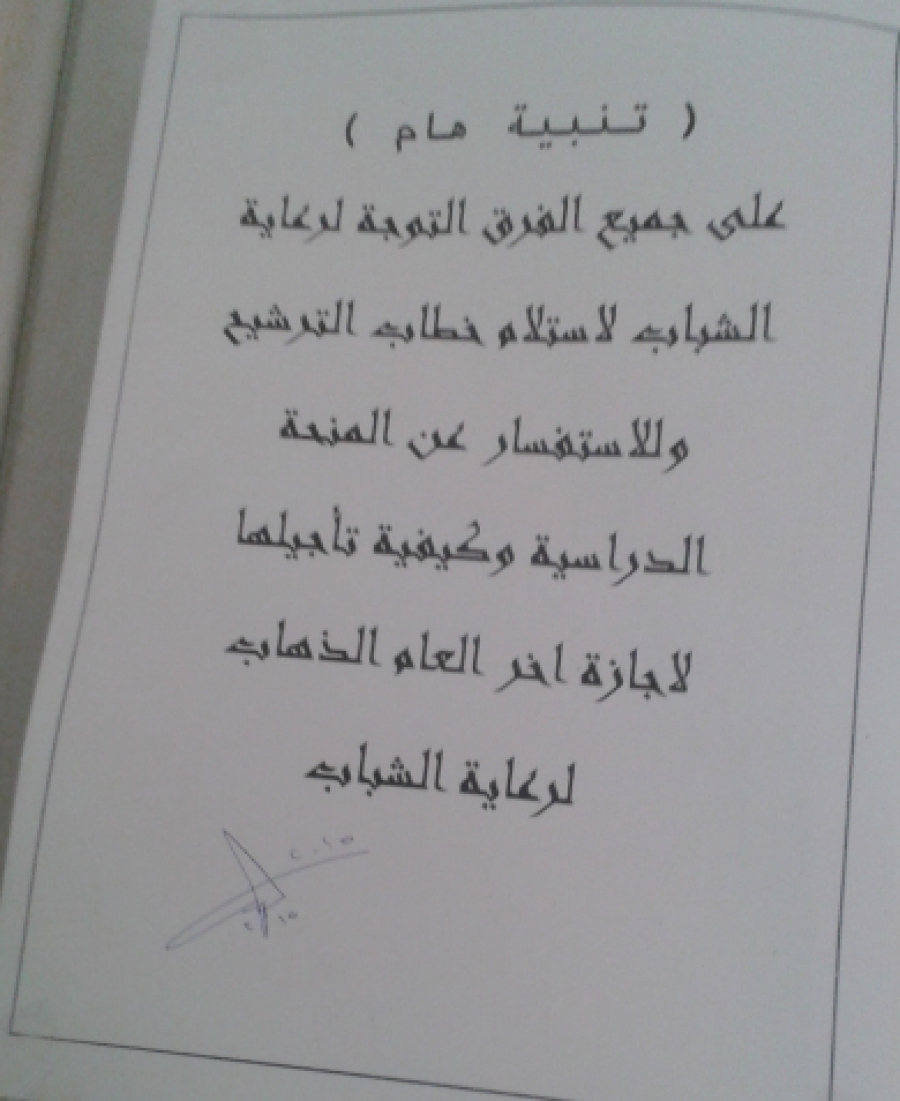 ( تنبية هام )
على جميع الفرق التوجة لرعاية
الشباب لاستلام خطاب الترشيح
وللاستفسار عن المنحة
الدراسية وكيفية تأجيلها
لاجازة اخر العام الذهاب
لرعاية الشباب
٢٠١٥